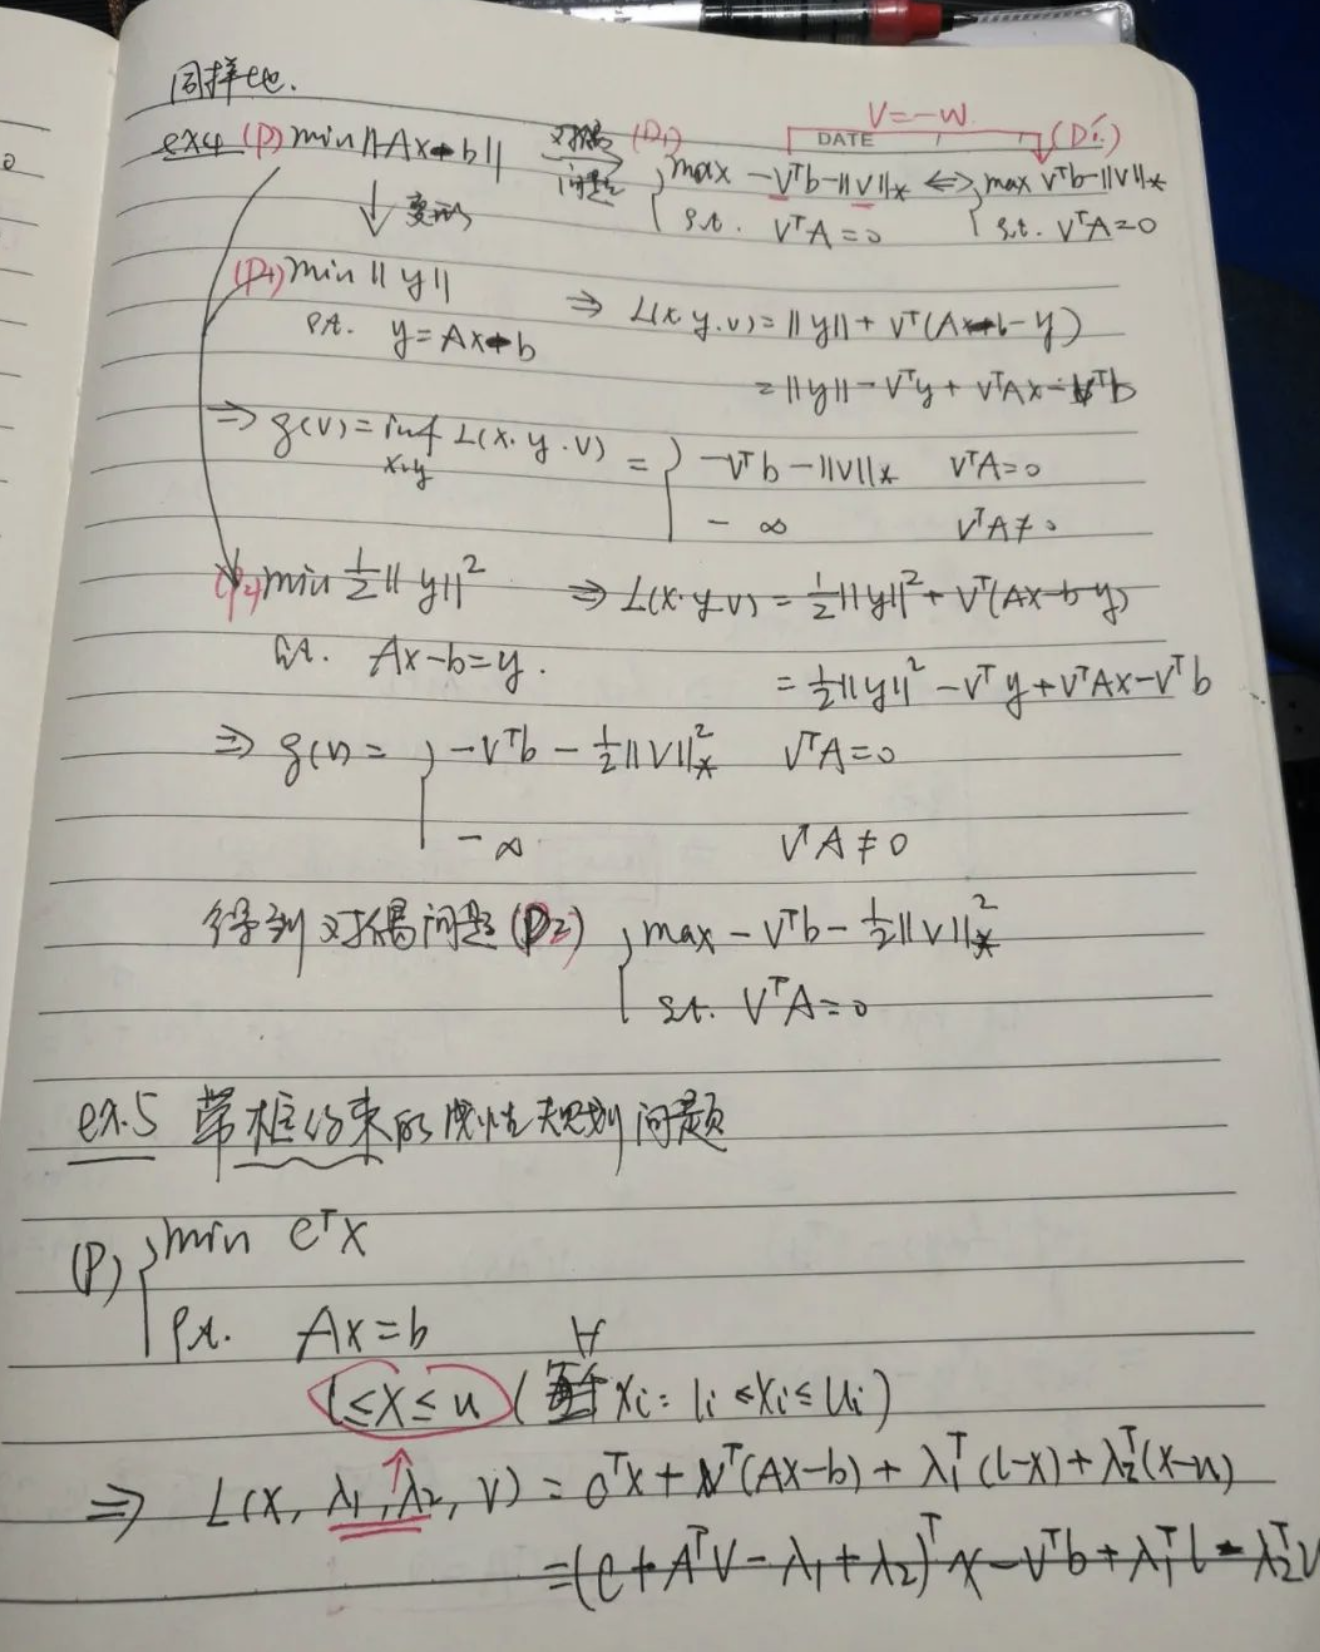 同样地.
DATE
V=-W
ex4 (P) min||Ax-b|| 对偶问题 (D₁) { max -Vᵀb-||V||* ⇔ (D₁') { max Vᵀb-||V||*
↓ 变形 s.t. VᵀA=0 s.t. VᵀA=0
(P₁) min ||y|| ⇒ L(x,y,v)=||y||+Vᵀ(Ax-b-y)
s.t. y=Ax-b
=||y||-Vᵀy+VᵀAx-Vᵀb
⇒ g(v)=inf L(x,y,v) = { -Vᵀb-||V||* VᵀA=0
x,y
-∞ VᵀA≠0
(P₂) min ½||y||² ⇒ L(x,y,v)=½||y||²+Vᵀ(Ax-b-y)
s.t. Ax-b=y.
=½||y||²-Vᵀy+VᵀAx-Vᵀb
⇒ g(v)= { -Vᵀb-½||V||*² VᵀA=0
-∞ VᵀA≠0
得到对偶问题(D₂) { max -Vᵀb-½||V||*²
s.t. VᵀA=0
ex.5 带框约束的线性规划问题
(P) { min cᵀx
s.t. Ax=b
∀
l≤x≤u ( xᵢ: lᵢ≤xᵢ≤uᵢ)
⇒ L(x, λ₁,λ₂, V) = cᵀx+Vᵀ(Ax-b)+λ₁ᵀ(l-x)+λ₂ᵀ(x-u)
=(c+AᵀV-λ₁+λ₂)ᵀx-Vᵀb+λ₁ᵀl-λ₂ᵀu